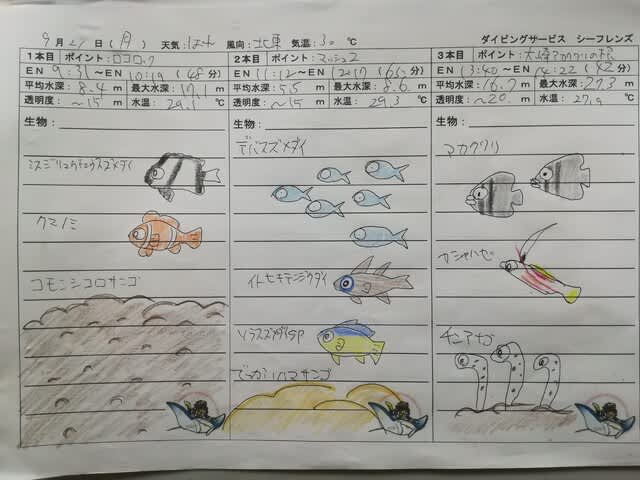 9月27日(月) 天気: はれ 風向: 北東 気温: 30℃ ダイビングサービス シーフレンズ
1本目 ポイント: ロコロック
EN 9:31～EN 10:19 (48分)
平均水深: 8.4m 最大水深: 17.1m
透明度: ～15m 水温: 29.1℃
生物:
ミスジリュウキュウスズメダイ
クマノミ
コモンシコロサンゴ
2本目 ポイント: マッシュ2
EN 11:12～EN 12:17 (65分)
平均水深: 5.5m 最大水深: 8.6m
透明度: ～15m 水温: 29.3℃
生物:
デバスズメダイ
イトヒキテンジクダイ
ソラスズメダイsp
でっかいハマサンゴ
3本目 ポイント: 大崎アカククリの根
EN 13:40～EN 14:22 (42分)
平均水深: 16.7m 最大水深: 27.3m
透明度: ～20m 水温: 27.9℃
生物:
アカククリ
ヤシャハゼ
チンアナゴ